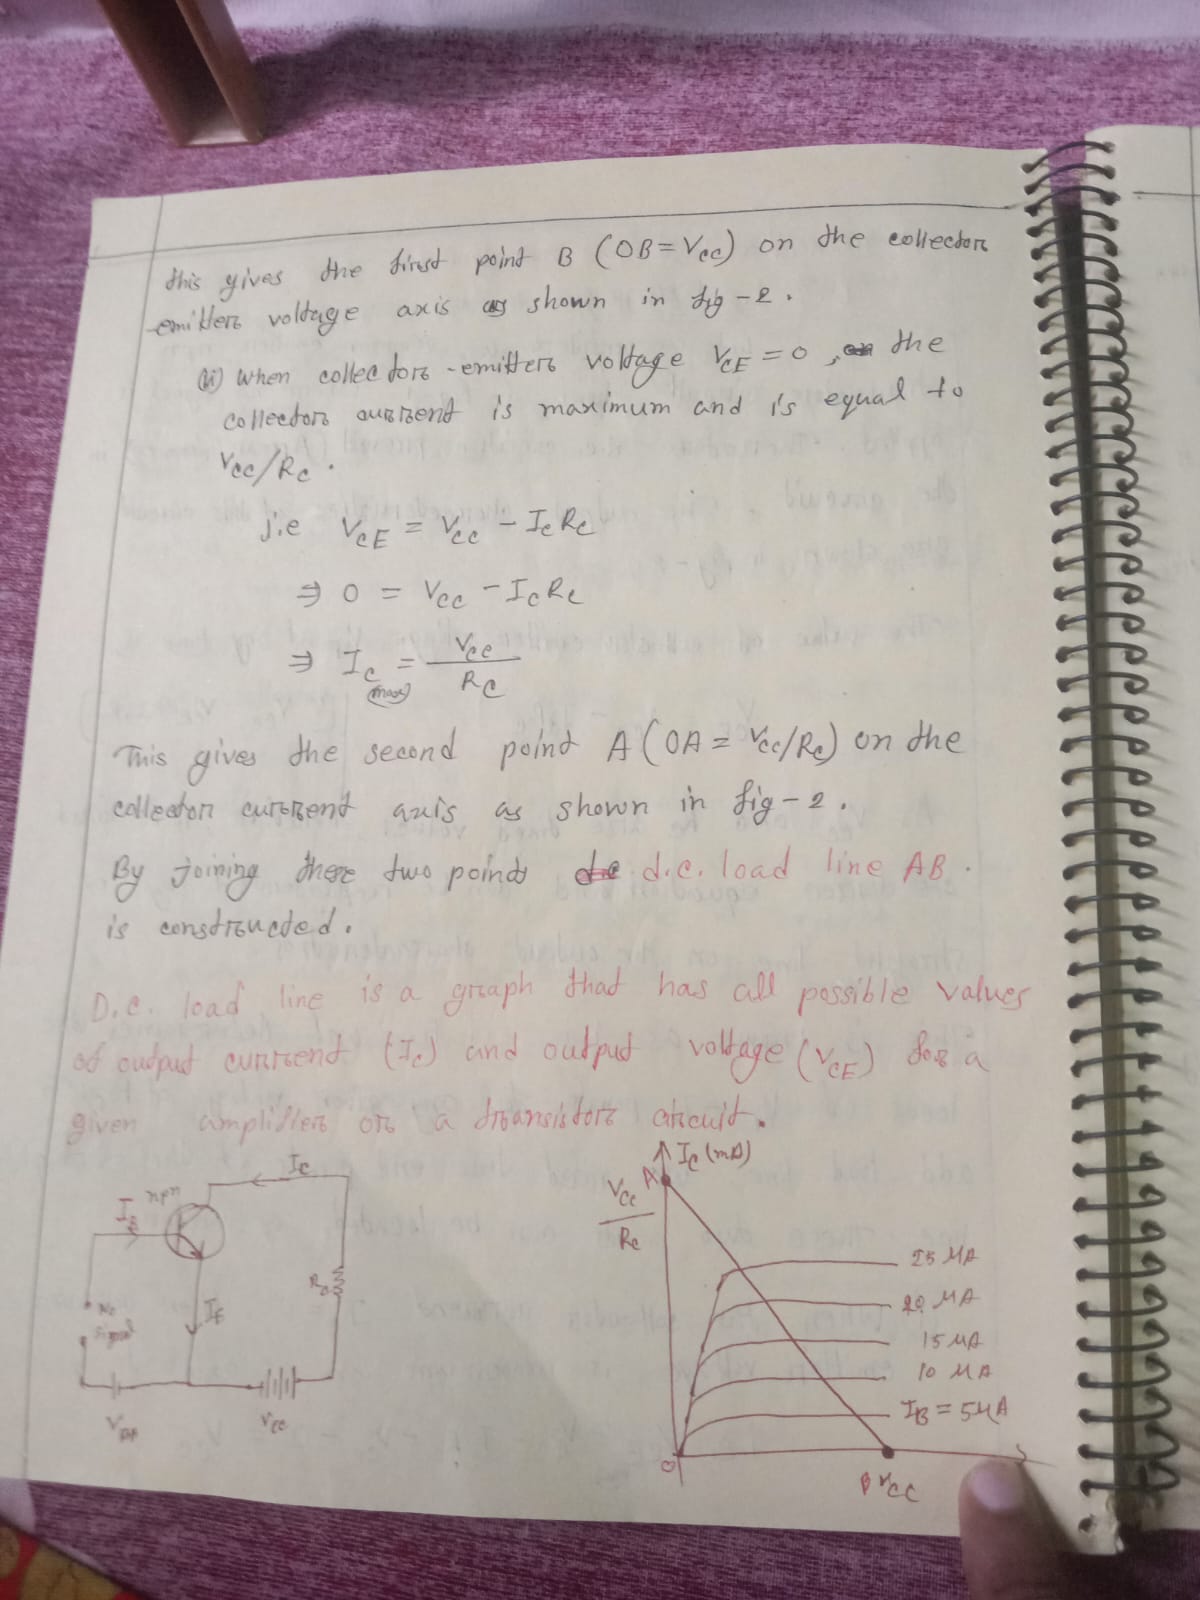 this gives the first point B (OB = Vcc) on the collector
emitter voltage axis as shown in fig-2.
(ii) When collector-emitter voltage VCE = 0, the
collector current is maximum and is equal to
Vcc/Rc.
i.e VCE = Vcc - IcRc
⇒ 0 = Vcc - IcRc
⇒ Ic(max) = Vcc/Rc
This gives the second point A (OA = Vcc/Rc) on the
collector current axis as shown in fig-2.
By joining these two points d.c. load line AB.
is constructed.
D.c. load line is a graph that has all possible values
of output current (Ic) and output voltage (VCE) for a
given amplifier or a transistor circuit.
Ic
npn
IB
RC
No
signal
IE
VBB
VCC
Ic (mA)
A
Vcc/Rc
25 μA
20 μA
15 μA
10 μA
IB = 5 μA
O
B VCC